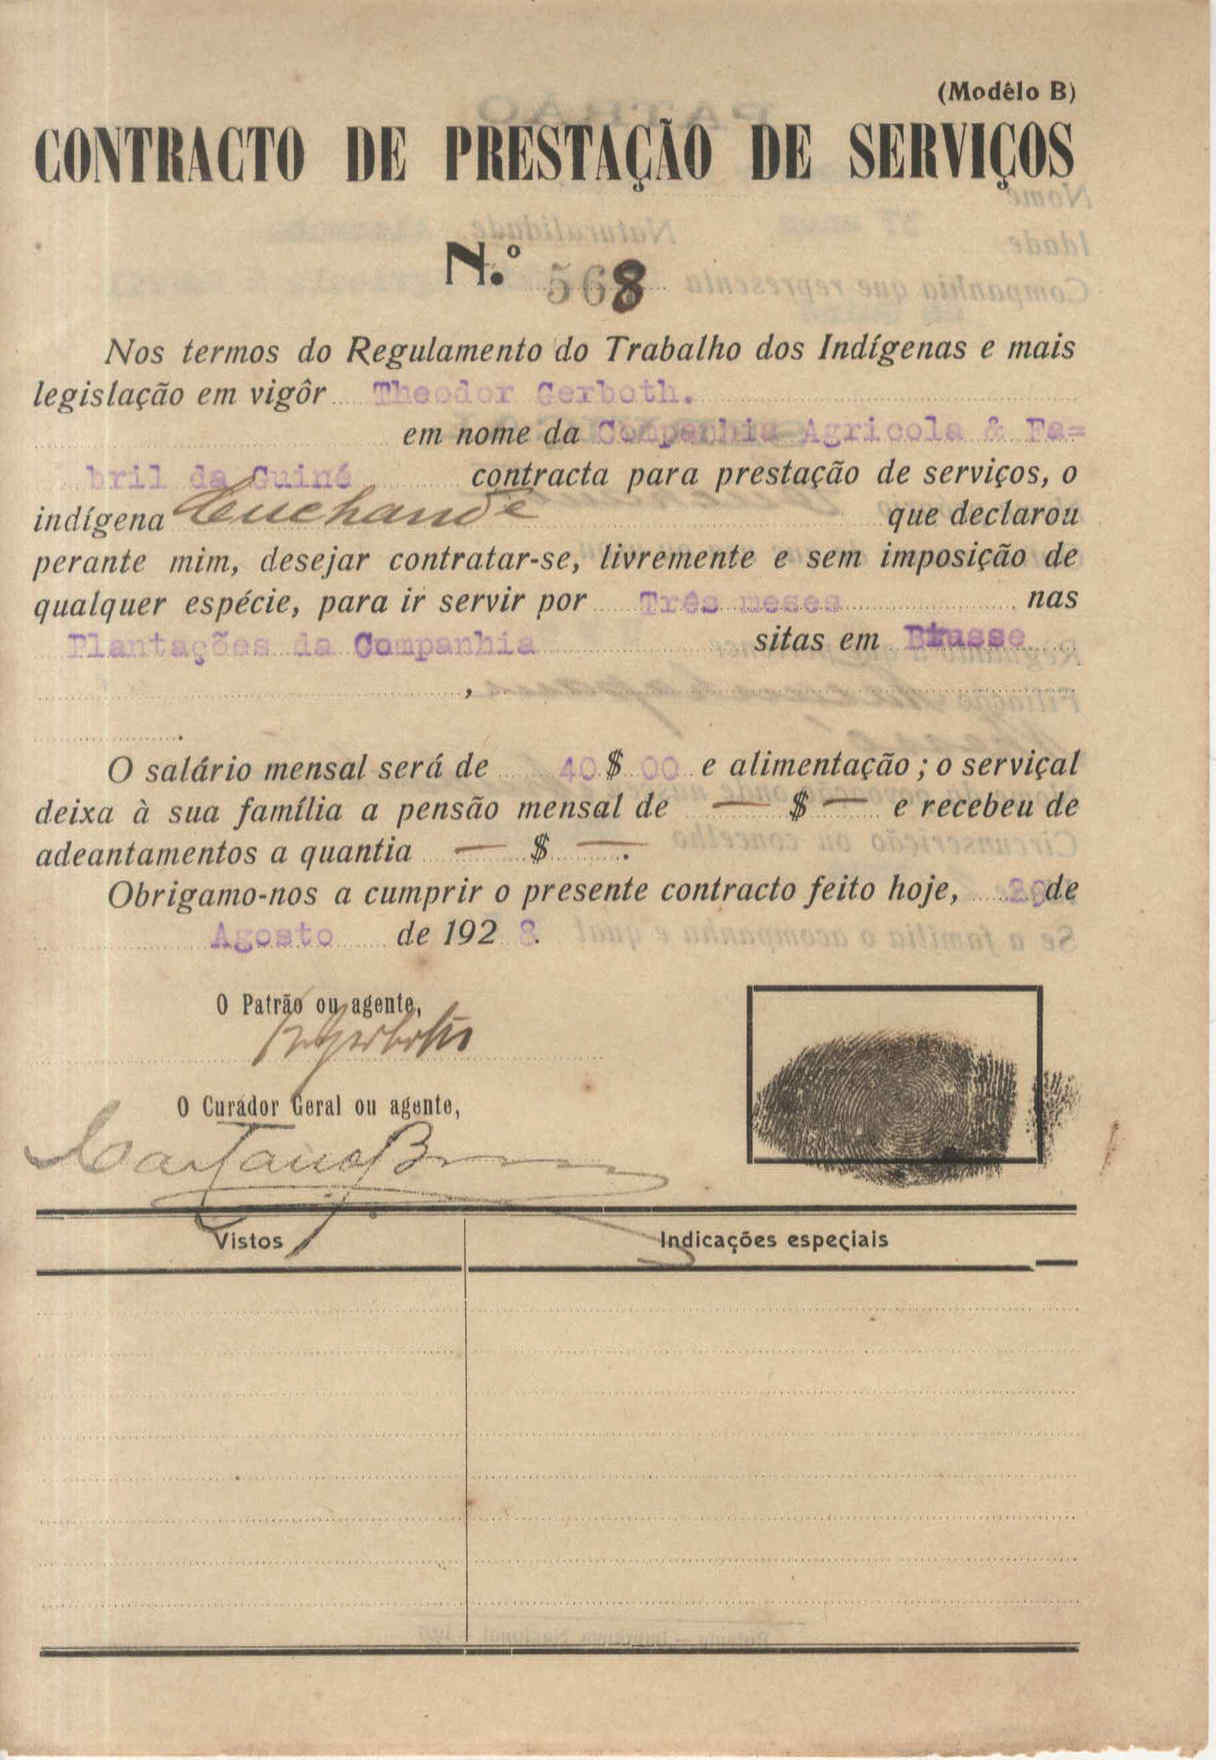 (Modêlo B)
CONTRACTO DE PRESTAÇÃO DE SERVIÇOS
N.º 568
Nos termos do Regulamento do Trabalho dos Indígenas e mais
legislação em vigôr Theodor Gerboth.
em nome da Companhia Agricola & Fa=
bril da Guiné contracta para prestação de serviços, o
indígena que declarou
perante mim, desejar contratar-se, livremente e sem imposição de
qualquer espécie, para ir servir por Três meses nas
Plantações da Companhia sitas em
,
.
O salário mensal será de 40$00 e alimentação; o serviçal
deixa à sua família a pensão mensal de — $ — e recebeu de
adeantamentos a quantia — $ —.
Obrigamo-nos a cumprir o presente contracto feito hoje, 29 de
Agosto de 1928.
O Patrão ou agente,
O Curador Geral ou agente,
Vistos Indicações especiais